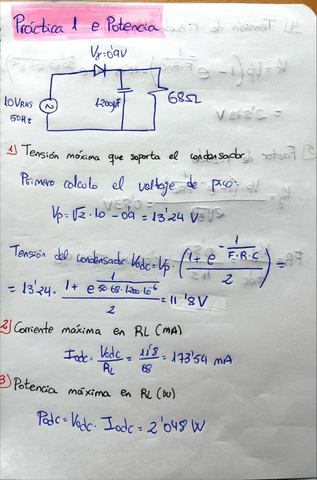 Práctica 1 e. Potencia
Vγ=0'9V
10VRMS
50Hz
1200μF
68Ω
1) Tensión máxima que soporta el condensador
Primero calculo el voltaje de pico:
Vp=√2·10 - 0'9 = 13'24 V
Tensión del condensador Vodc = Vp · (1 + e^(-1/(F·R·C)) / 2) =
= 13'24 · (1 + e^(1/(50·68·1200·10⁻⁶)) / 2) = 11'8V
2) Corriente máxima en RL (mA)
Iodc = Vodc/RL = 11'8/68 = 173'54 mA
3) Potencia máxima en RL (W)
Podc = Vodc · Iodc = 2'048 W